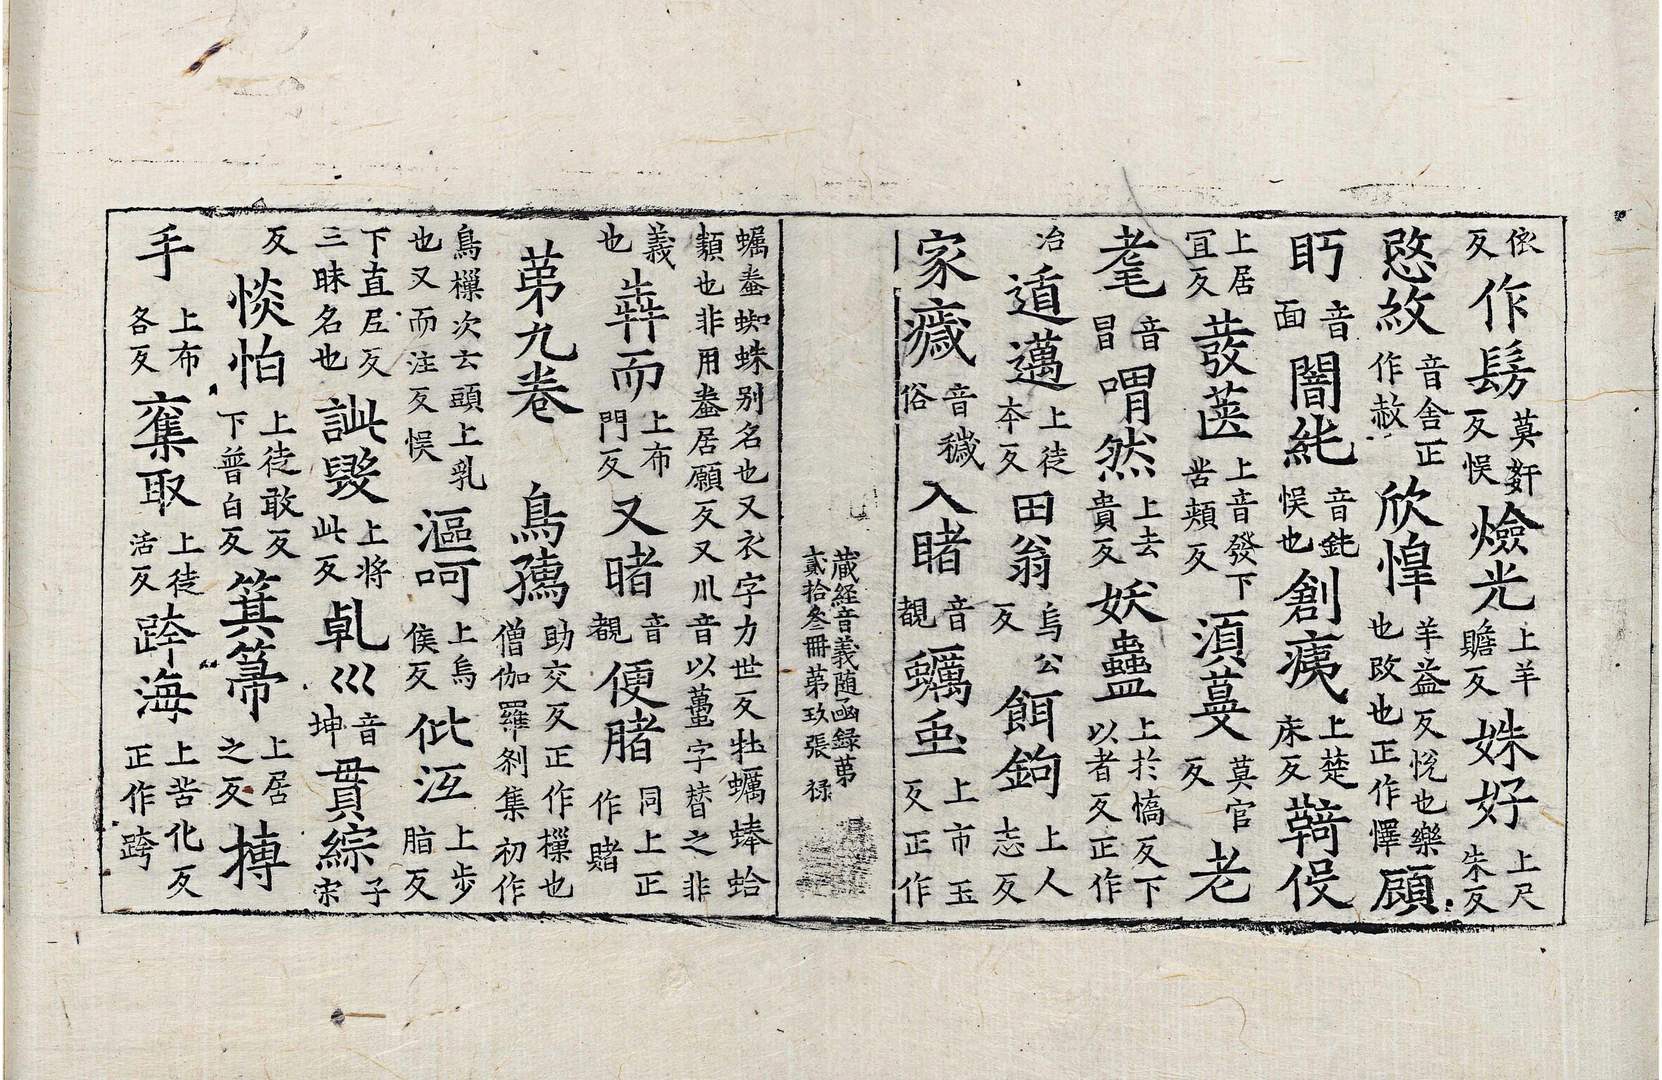 依反作髣莫奸反悮燬光上羊贍反姝好上尺朱反
愍效音舍正作赦欣惶羊益反悅也樂也改也正作懌顧
眄音面闇毦音毦悮也創痍上楚床反鞫
上居宜反蔎莢上音發下苦頰反湏蔓莫官反老
耄音冒喟然上去貴反妖蠱上於憍反下以者反正作
冶遁邁上徒本反田翁烏公反餌鉤上人志反
家薉音穢俗入睹音覩蠣䖝上市玉反正作
蔵經音義随函録苐貳拾叁冊苐玖張 禄
蠣蚕蜘蛛别名也又衣字力世反牡蠣蜯蛤
類也非用蚕居願反又川音以蠆字替之非
義也犇而上布門反又睹音覩便賭同上正作賭
苐九卷 鳥鵚助交反正作樔也僧伽羅剎集初作
鳥樔次云頭上乳也又而注反悮漚呵上烏侯反仳沍上步脂反
下直尼反三昧名也訿毀上將此反乹巛音坤貫綜子宋
反惔怕上徒敢反下普白反箕箒上居之反摶
手上布各反奪取上徒活反跨海上苦化反正作跨